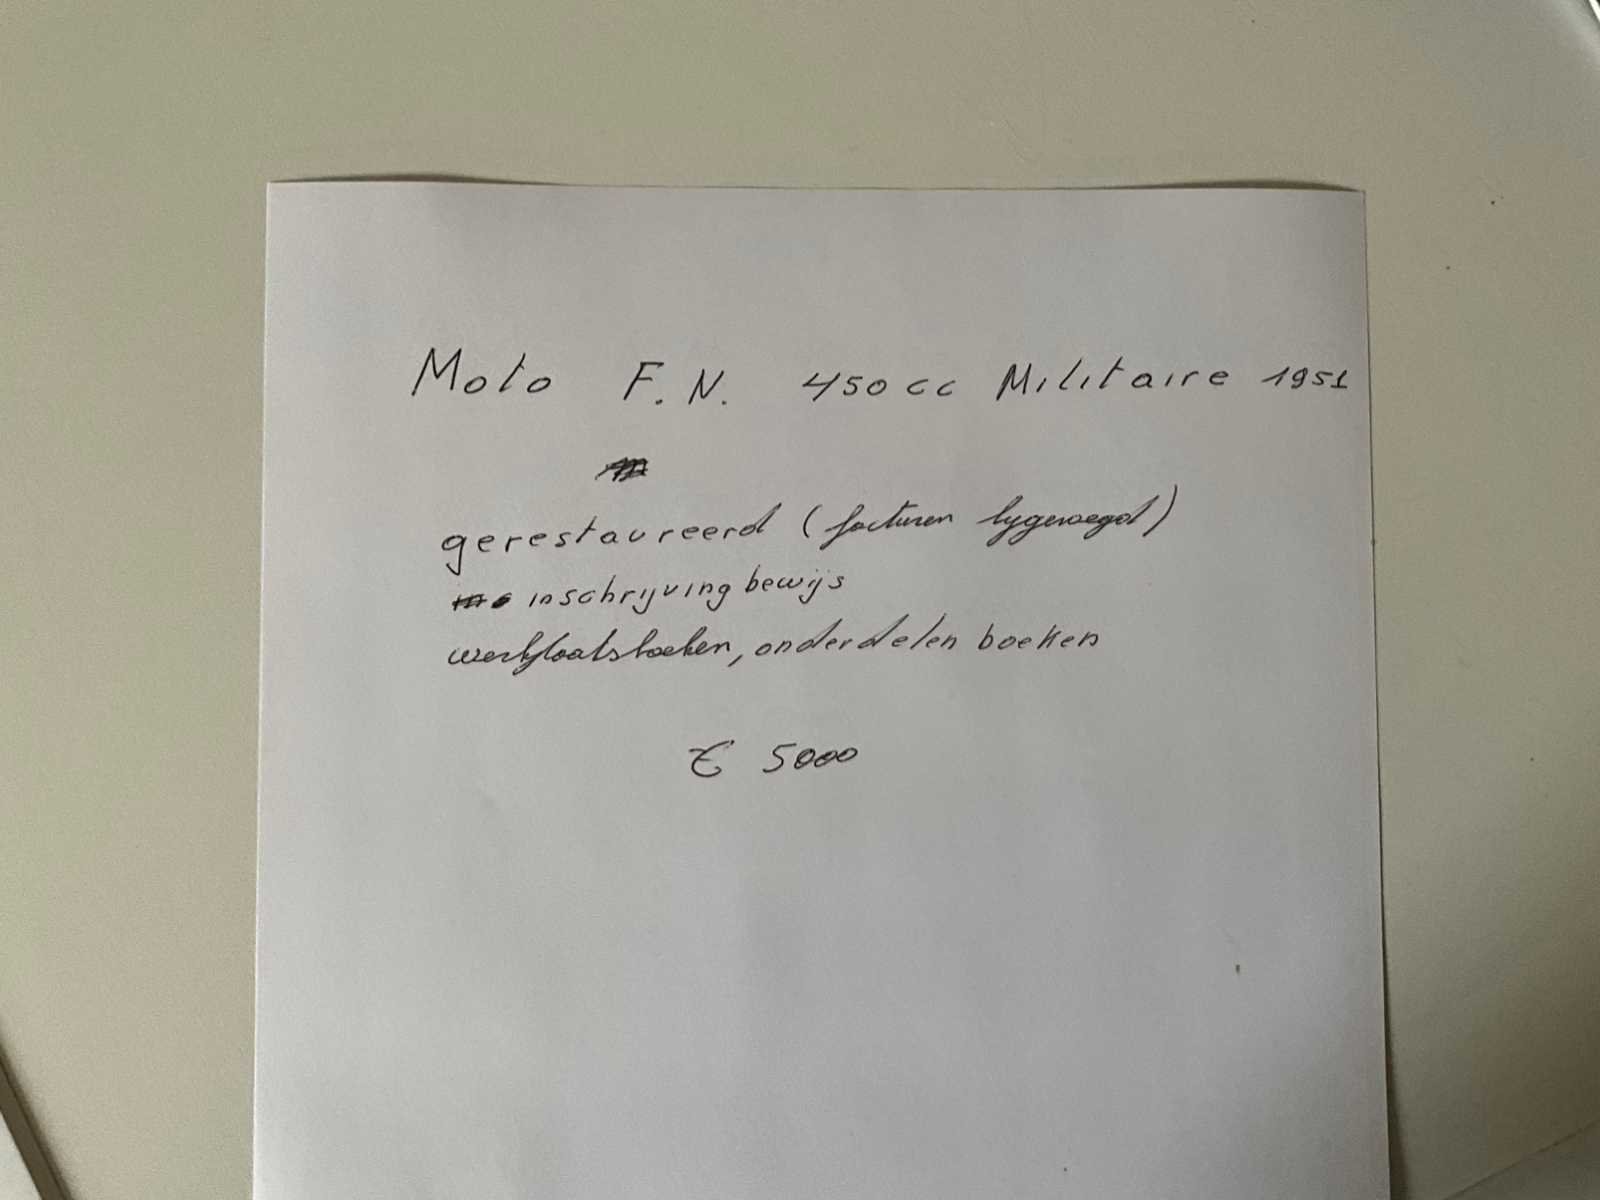 Moto F.N. 450cc Militaire 1951
gerestaureerd (facturen bygevoegd)
inschrijvingbewijs
werkplaatsboeken, onderdelen boeken
€ 5000